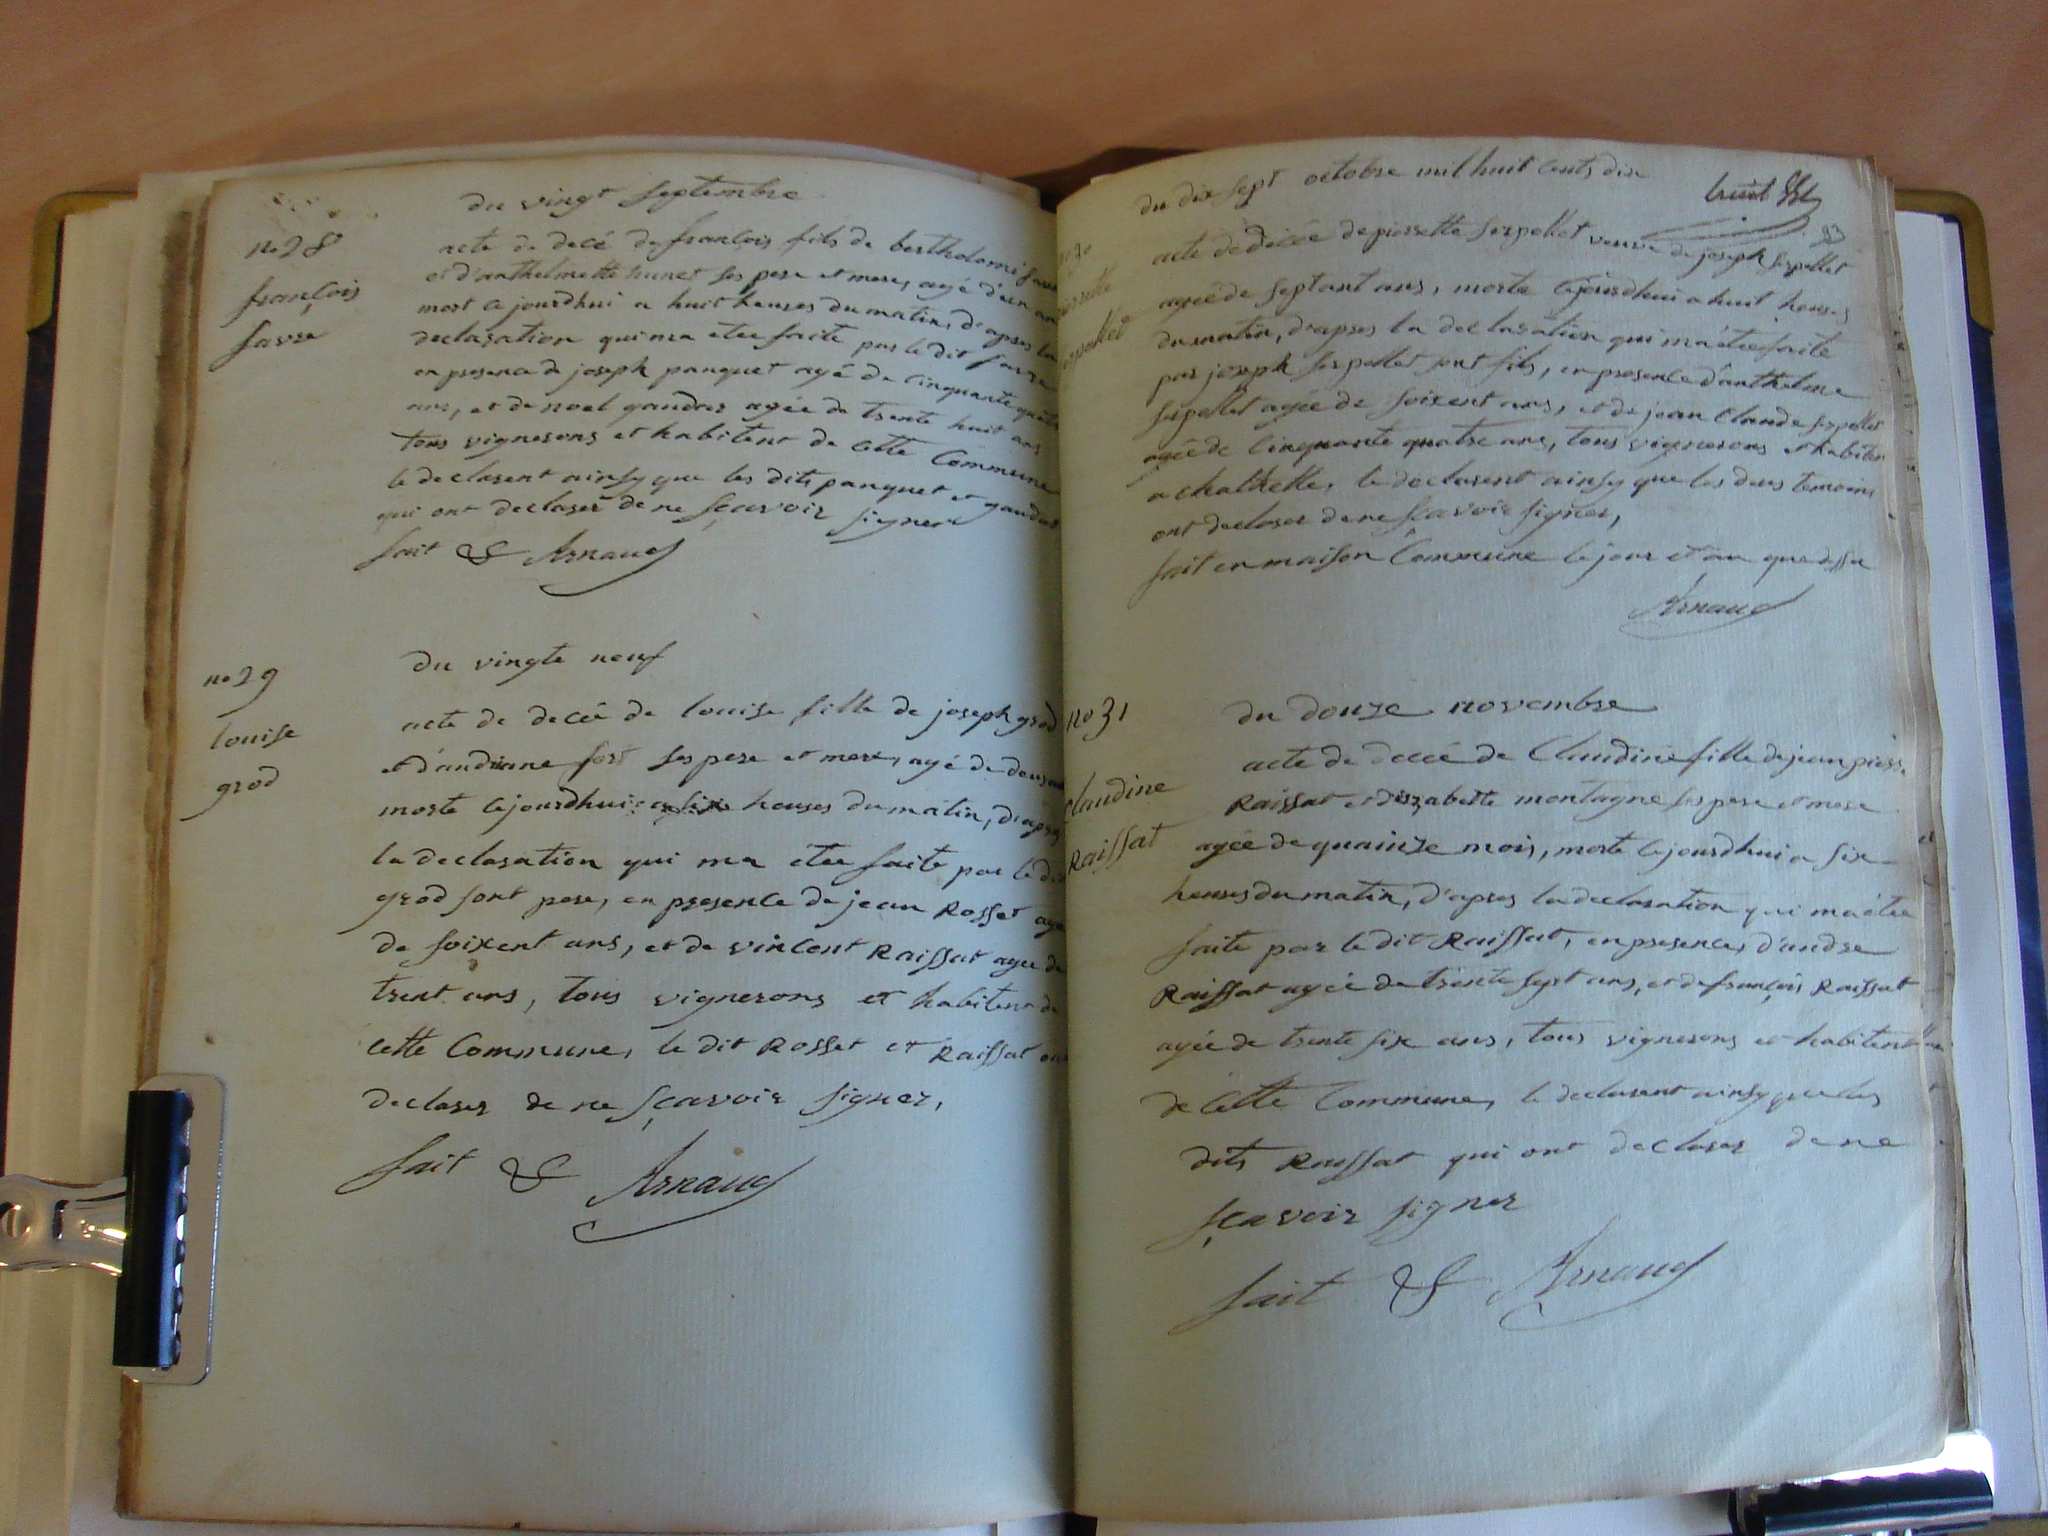 du vingt septembre
no 28
françois
favre
acte de decé de françois fils de bertholomé favre
et d'anthelmette ses pere et mere, agé d'un an
mort ce jourdhui a huit heures du matin, d'apres la
declaration qui ma etee faite par le dit favre
en presence de joseph panquet agé de cinquante quatre
ans, et de noel gandar agée de trente huit ans
tous vignerons et habitent de cette Commune
le declarent ainsy que les dits panquet et gandar
qui ont declarer de ne sçavoir signer
fait & Arnaud
no 29
louise
grod
du vingte neuf
acte de decée de louise fille de joseph grod
et d'andriane fort ses pere et mere, agé de deux
morte ce jourdhui a six heures du matin, d'apres
la declaration qui ma etee faite par le dit
grod sont pere, en presence de jean Rosset agée
de soixent ans, et de vincent Raissat agee de
trent ans, tous vignerons et habitent de
cette Commune, le dit Rosset et Raissat ont
declarer de ne sçavoir signer,
fait & Arnaud
du dix sept octobre mil huit cents dix
23
no 30
pierrette
serpollet
acte de décée de pierrette serpollet veuve de joseph serpollet
agée de septant ans, morte ce jourdhui a huit heures
du matin, d'apres la declaration qui ma étée faite
par joseph serpollet sont fils, en presence d'anthelme
serpollet agée de soixent ans, et de jean Claude serpollet
agée de cinquante quatre ans, tous vignerons et habiten
a le declarent ainsy que les deus temoins
ont declarer de ne sçavoir signer,
fait en maison Commune le jour et an que dessu
Arnaud
no 31
Claudine
Raissat
du douze novembre
acte de decée de Claudine fille de jean pierre
Raissat et d'izabette montagne ses pere et mere
agée de quainze mois, morte ce jourdhui a six
heures du matin, d'apres la declaration qui ma étée
faite par le dit Raissat, en presence, d'andre
Raissat agée de trente sept ans, et de françois Raissat
agée de trente six ans, tous vignerons et habitent
de Cette Commune, le declarent ainsy que les
dits Raissat qui ont declarer de ne
sçavoir signer
fait & Arnaud